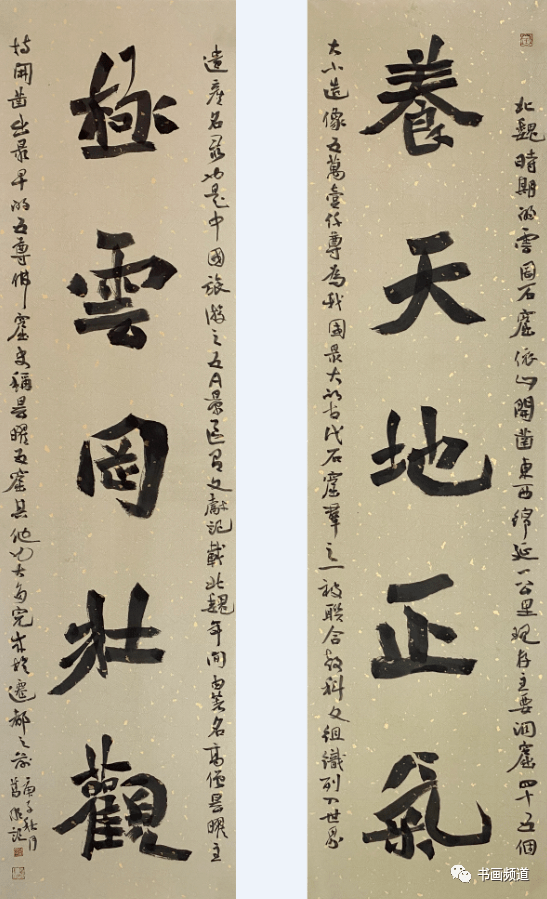 北魏時期的雲岡石窟依山開凿東西绵延一公里现存主要洞窟四十五個
養天地正氣
大小造像五萬壹仟尊為我國最大的古代石窟羣之一被聯合教科文组織列入世界
遺產名录也是中國旅游之五A景區有文獻記載北魏年间由著名高僧昙曜主
極雲岡壯觀
持開凿出最早的五尊佛窟史稱昙曜五窟其他也大多完成於遷都之前
庚子秋月
书画频道